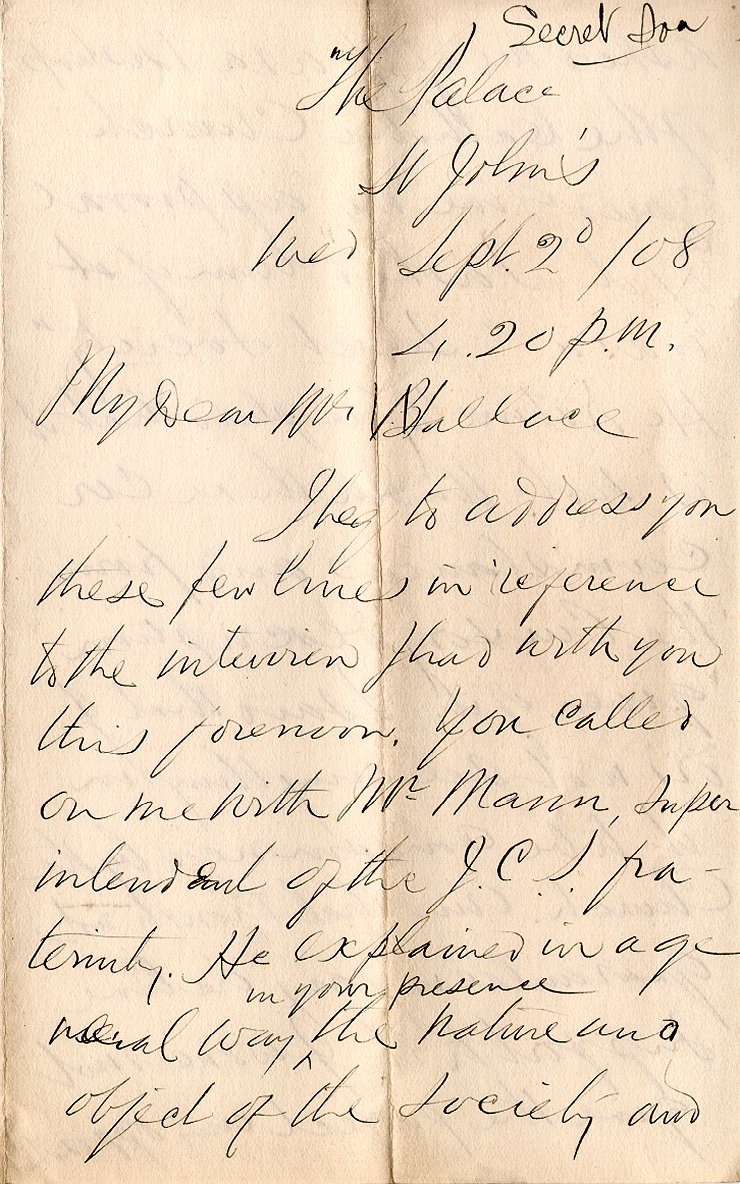 Secret Soa
The Palace
St John's
Wed Sept. 2d /08
4.20 p.m.
My Dear Mr Wallace
I beg to address you
these few lines in reference
to the interview I had with you
this forenoon. You called
on me with Mr Mann, super
intendent of the J.C.S. fra-
ternity. He explained in a ge
neral way in your presence the nature and
object of the society and